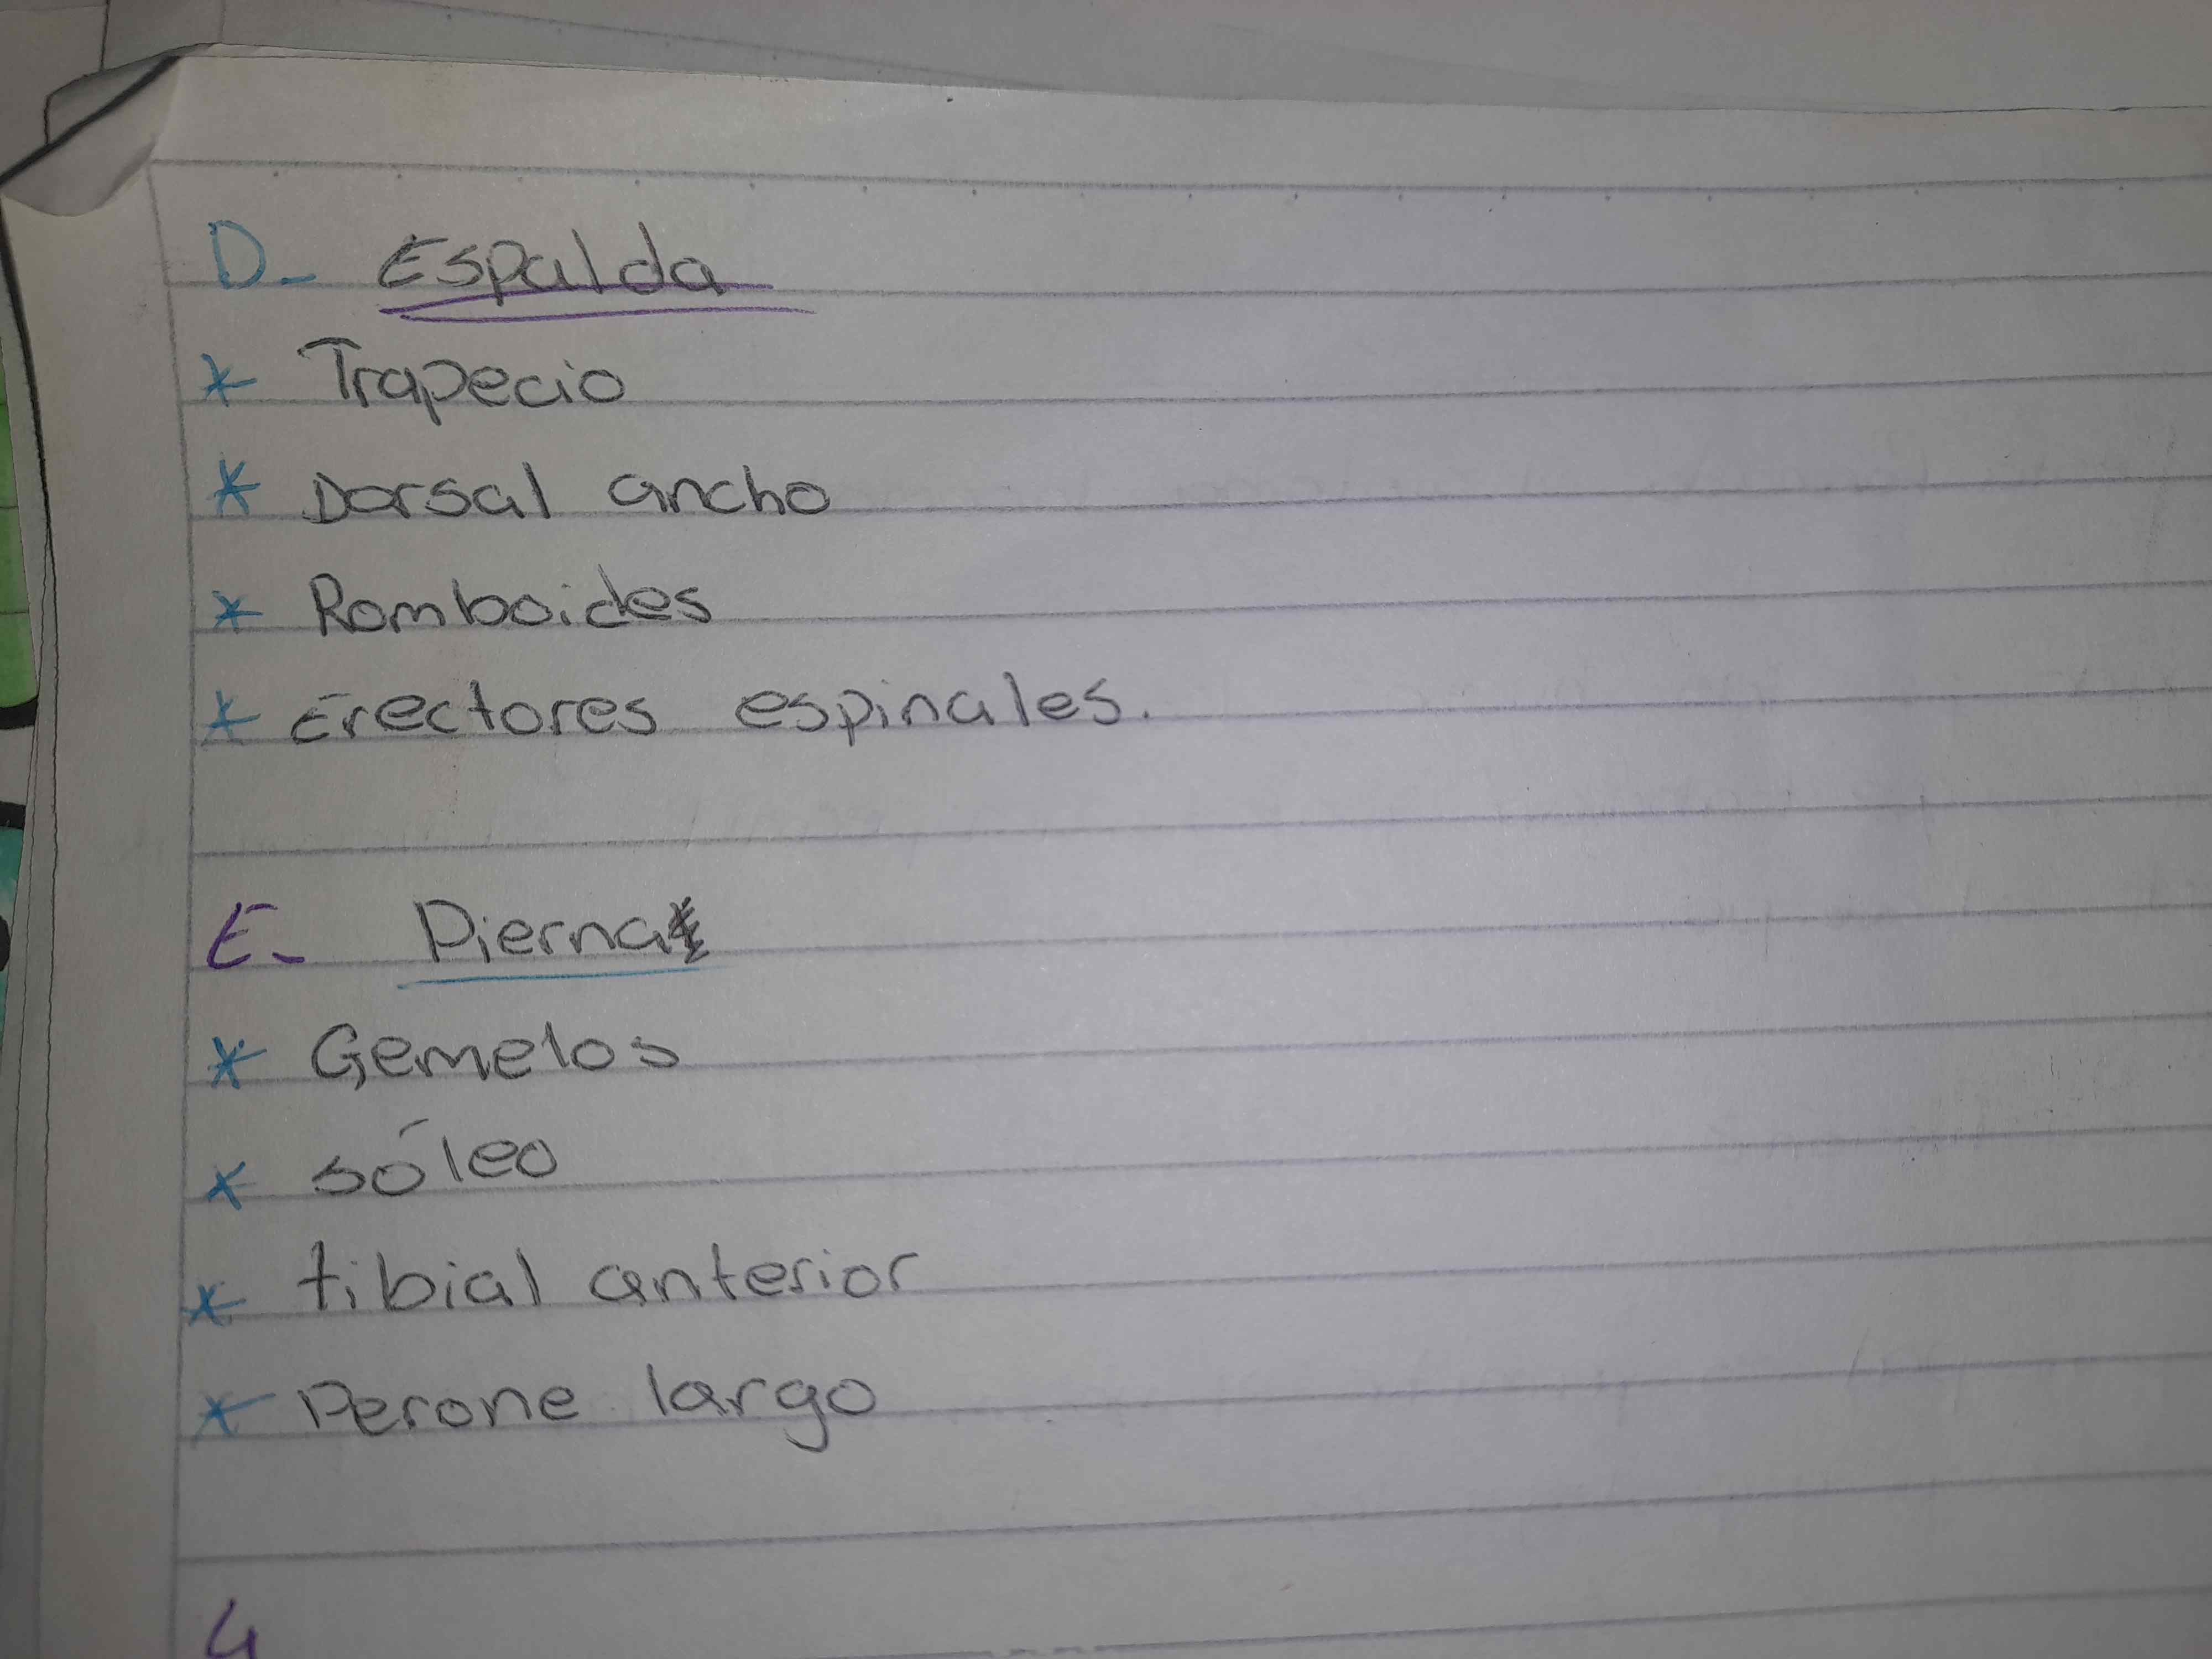 D- Espalda
* Trapecio
* Dorsal ancho
* Romboides
* Erectores espinales.
E- Pierna
* Gemelos
* sóleo
* tibial anterior
* Perone largo
4